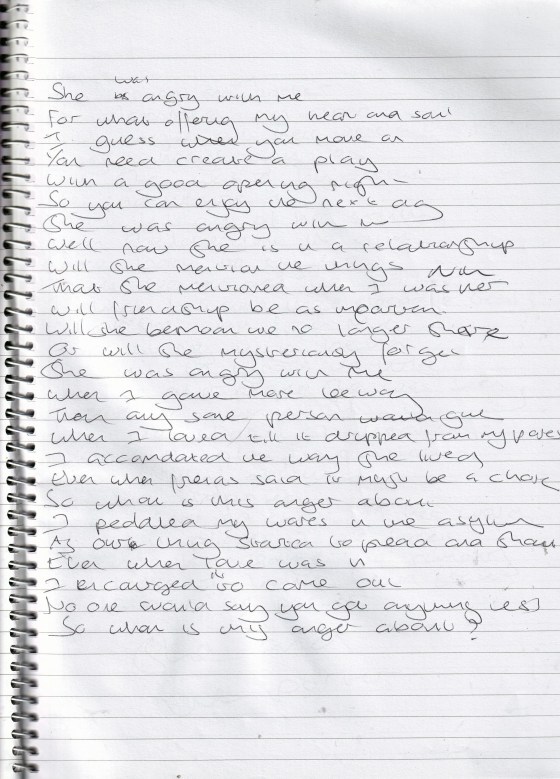 She was angry with me
For what offering my heart and soul
I guess when you move on
You need create a play
With a good opening night
So you can enjoy the next day
She was angry with me
Well now she is in a relationship
Will she mention the things
That she mentioned when I was her
Will friendship be as important
Will she bemoan we no longer share
Or will she mysteriously forget
She was angry with me
When I gave more leeway
Than any sane person would give
When I loved till it dripped from my pores
I accomdated the way she lived
Even when friends said it must be a chore
So what is this anger about
I peddled my wares in the asylum
As our thing started to and
Even when Dave was in
I encouraged it to come out
No one could say you got anything less
So what is this anger about?